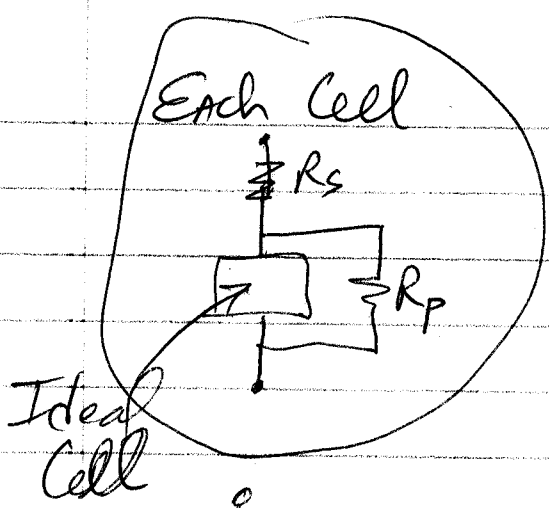 Each Cell
Rs
Rp
Ideal
Cell